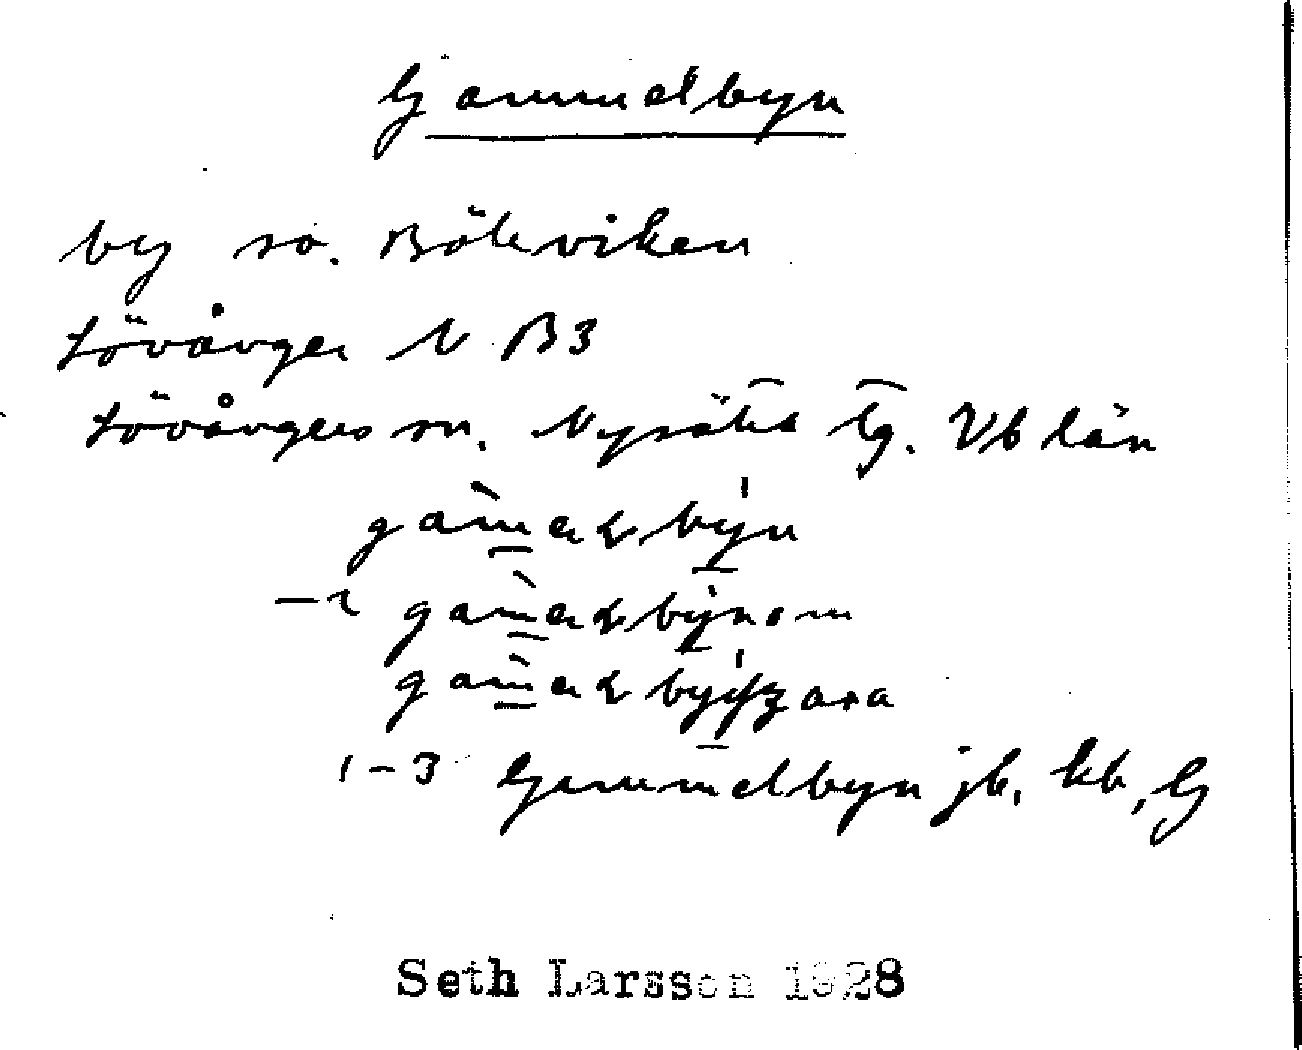 Gammelbyn
by so. Bökviken
Lövånger N B3
Lövångers sn. Nysätra tg. Vb län
gam̀alby̍n
gam̀alby̍nom
gam̀alby̍
1-3 Gammelbyn jb, kb, G
Seth Larsson 1928